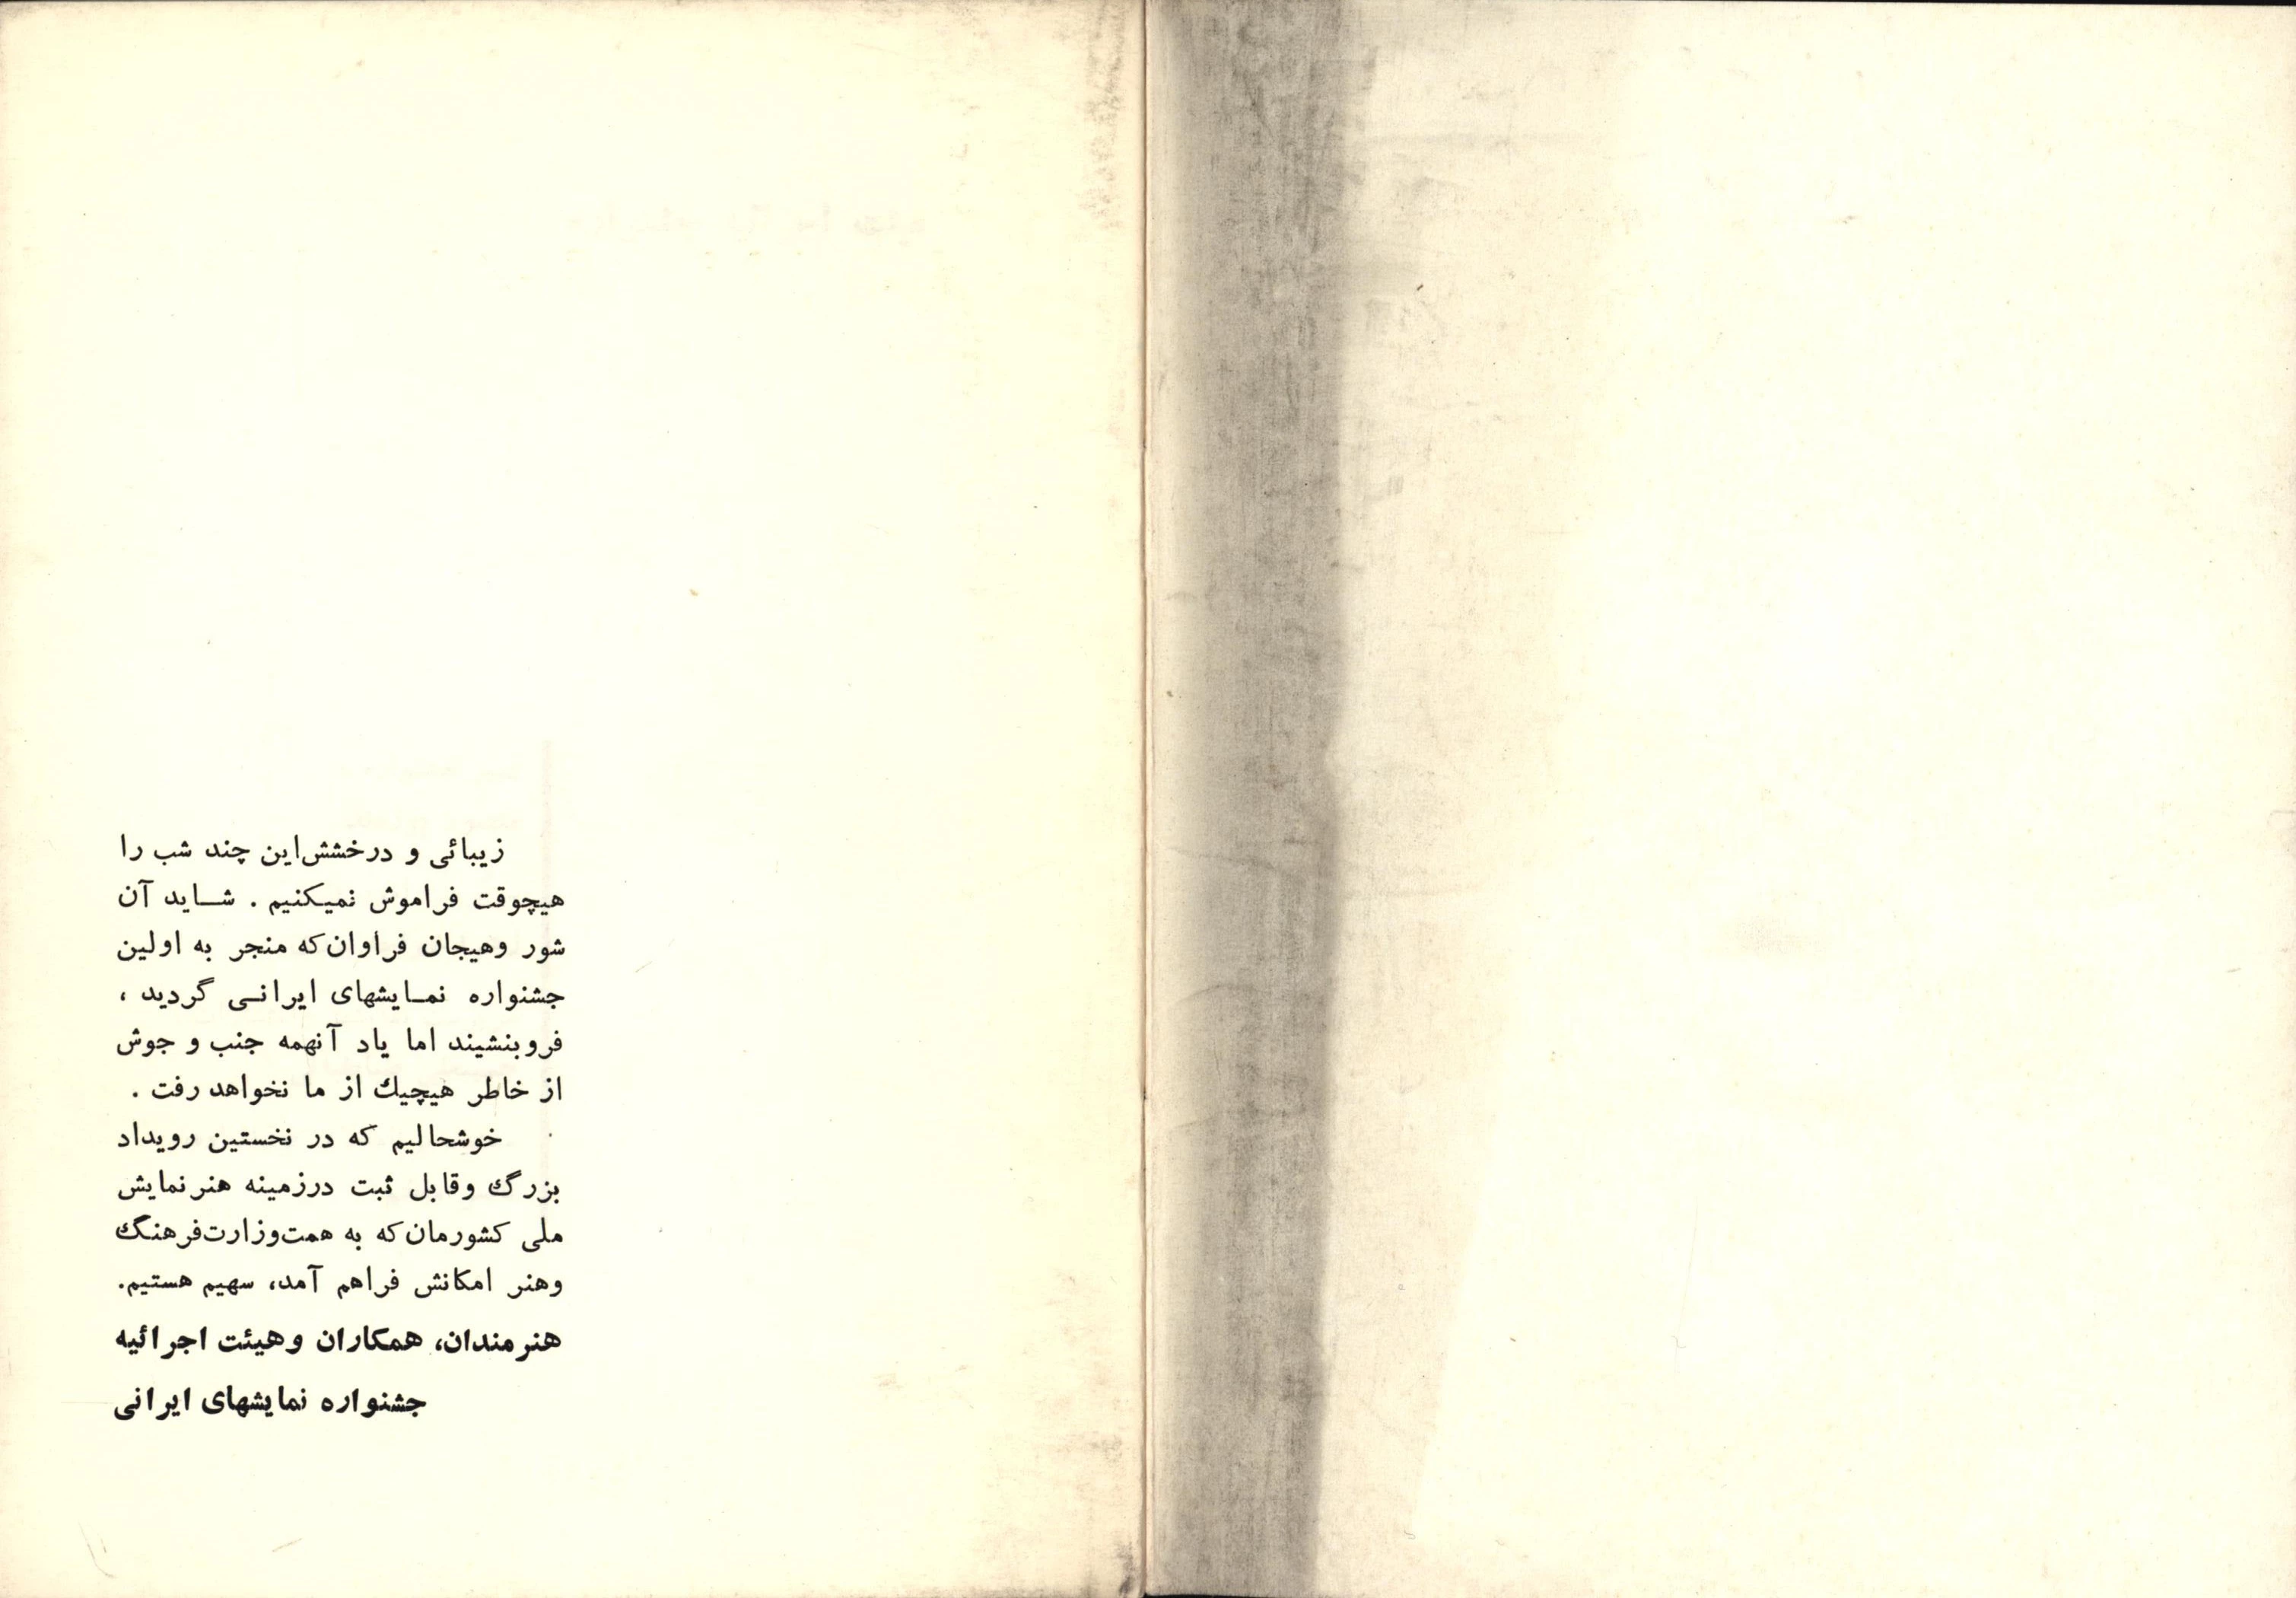 زیبائی و درخشش این چند شب را
هیچوقت فراموش نمیکنیم . شـاید آن
شور وهیجان فراوان که منجر به اولین
جشنواره نمـایشهای ایرانـی گردید ،
فروبنشیند اما یاد آنهمه جنب و جوش
از خاطر هیچیك از ما نخواهد رفت .
خوشحالیم که در نخستین رویداد
بزرگ وقابل ثبت درزمینه هنر نمایش
ملی کشورمان که به همت وزارت فرهنگ
وهنر امکانش فراهم آمد، سهیم هستیم.
هنرمندان، همکاران وهیئت اجرائیه
جشنواره نمایشهای ایرانی